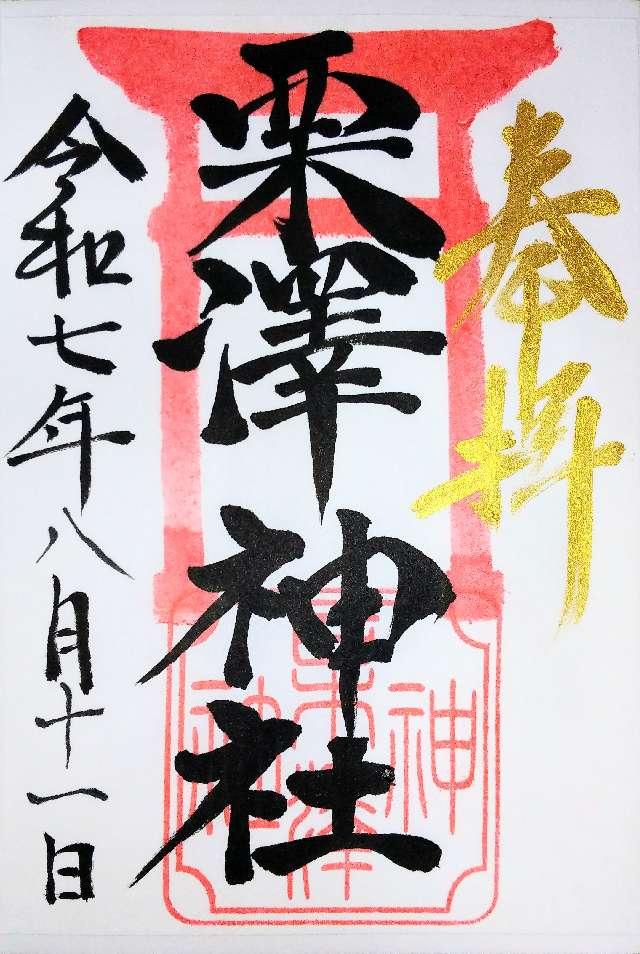 奉拝
栗澤神社
令和七年八月十一日
栗澤
神社